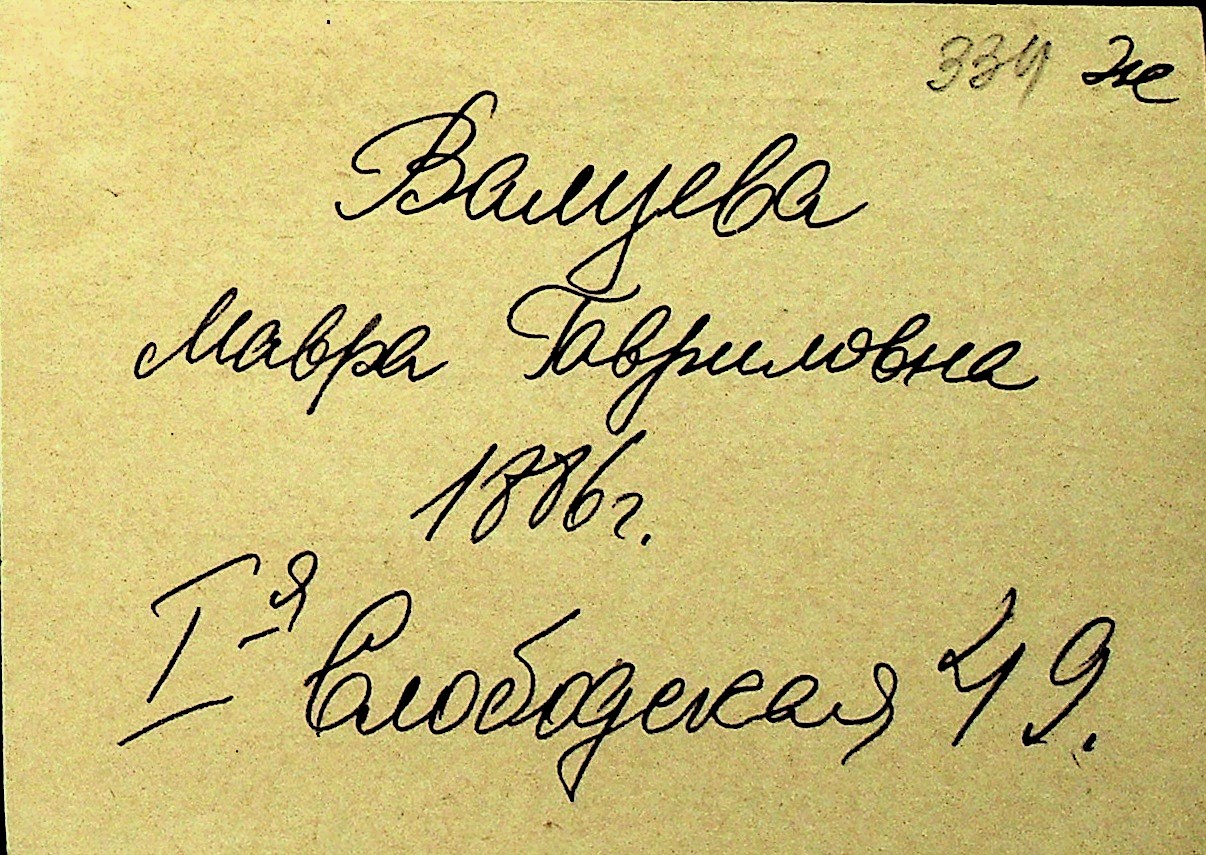 334 Же
Валуева
Мавра Гавриловна
1886г.
I-я Слободская 49.